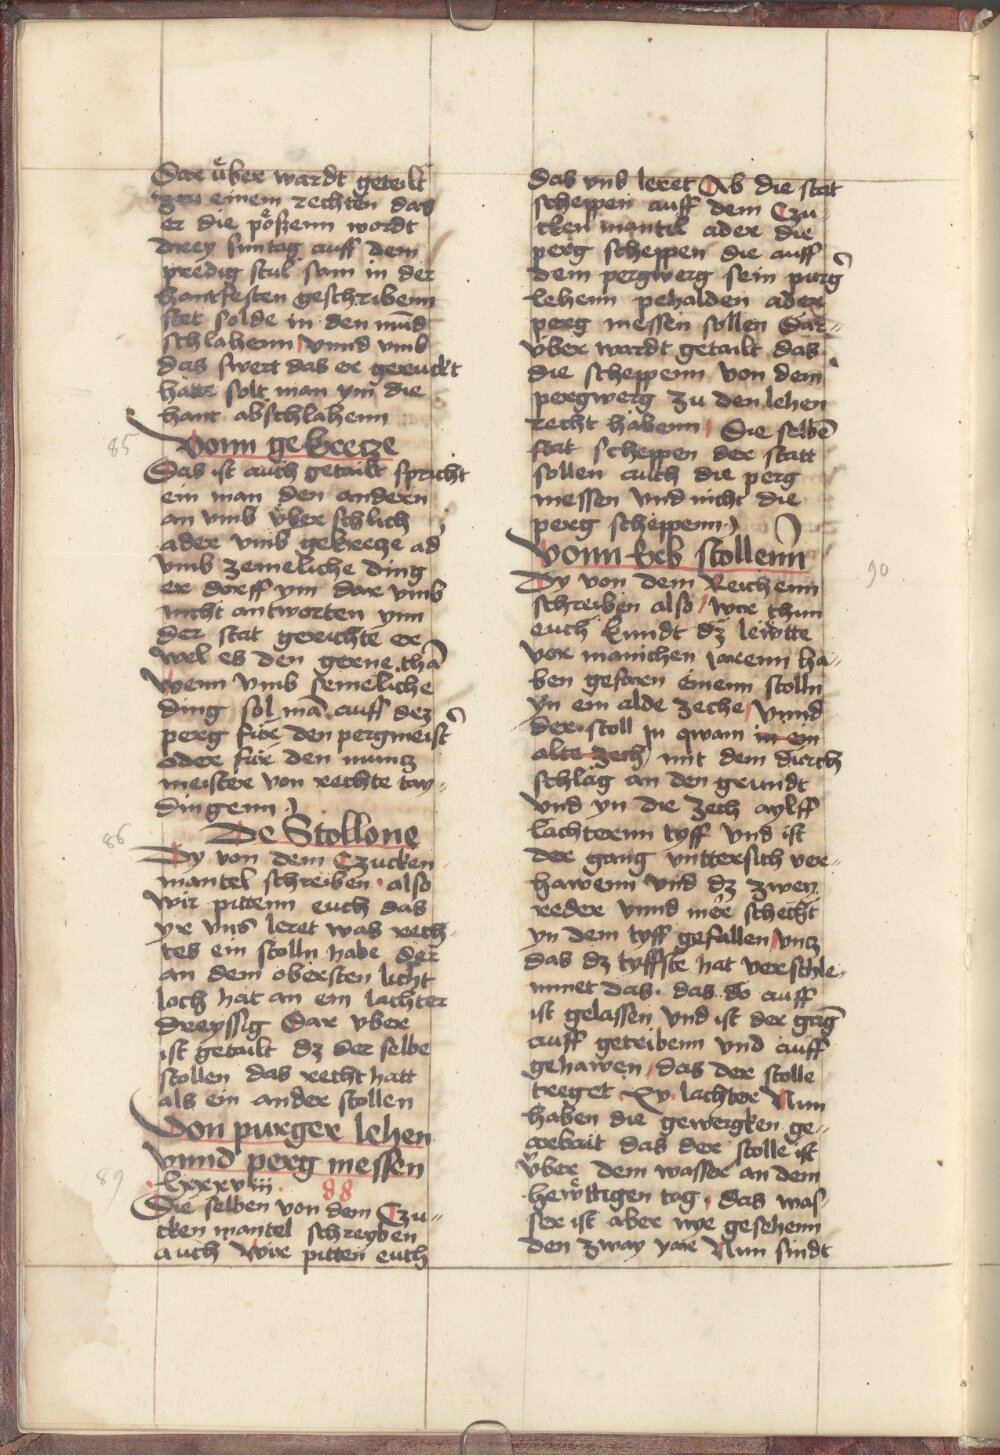 Dar vͤber wardt geteilt
zcu einem rechten das
er die pößenn wordt
drey suntag auff dem
predig stul sam in der
hantfesten geschribenn
stet solde in den mūd
schlahenn vnnd vmb
das swert das er geruckt
hatte solt man ym die
hant abschlahenn
85
Vonn gekrecze
Das ist auch getailt spricht
ein man den andern
an vmb vͤber schlich
ader vmb gekrecze ad
vmb zemeliche ding
er dorff ym dar vmb
nicht antworten ynn
der stat gerichte er
wel es den gerne thā
Wenn vmb semeliche
ding sol mā auff dez
perg für den pergmeist
oder für den muncz
meister von rechte tay-
dingenn
86
De Stollone
Dy von dem Czucken
mantel schreiben also
Wir pittenn euch das
yr vns leret was rech-
tes ein stolln habe der
an dem obersten licht
loch hat an ein lachter
dreyssig Dar vber
ist getailt dz der selbe
stollen das recht hatt
als ein ander stollen
Von purger lehen
vnnd perg messen
89
lxxxviij. 88
Die selben von dem Czu-
cken mantel schreyben
auch Wir pitten euch
das vns leret Ab die stat
scheppen auff dem Czu-
cken mantel ader die
perg scheppen die auff
dem pergwerg sein purg
lehenn pehalden ader
perg messen sollen Dar-
vber wardt getailt das
die scheppenn von dem
pergwerg zu den lehen
recht habenn Die selbē
stat scheppen der statt
sollen auch die perg
messen vnd nicht die
perg scheppenn
Vonn krb stollenn
90
Dy von dem Reichenn
schreiben also wir thun
euch kundt dz lewtte
vor manichen jarenn ha-
ben gefarn einenn stolln
yn ein alde zeche vnnd
der stoll jn qwam in ein
alte zech mit dem durch
schlag an den grundt
vnd yn die zech aylff
lachternn tyff vnd ist
der gang vnttersich ver-
hawenn vnd dz zwey
reder vnnd mer schecht
yn dem tyff gefallen vncz
das dz tyffste hat verschle-
mmet das das do auff
ist gelassen vnd ist der gāg
auff getribenn vnd auff
gehawen das der stolle
treget xv lachter Nun
haben die gewergken ge-
arbait das der stolle ist
vͤber dem wasser an dem
hewttigen tag das was-
ser ist aber nye gesehenn
den zway yare Nun sindt